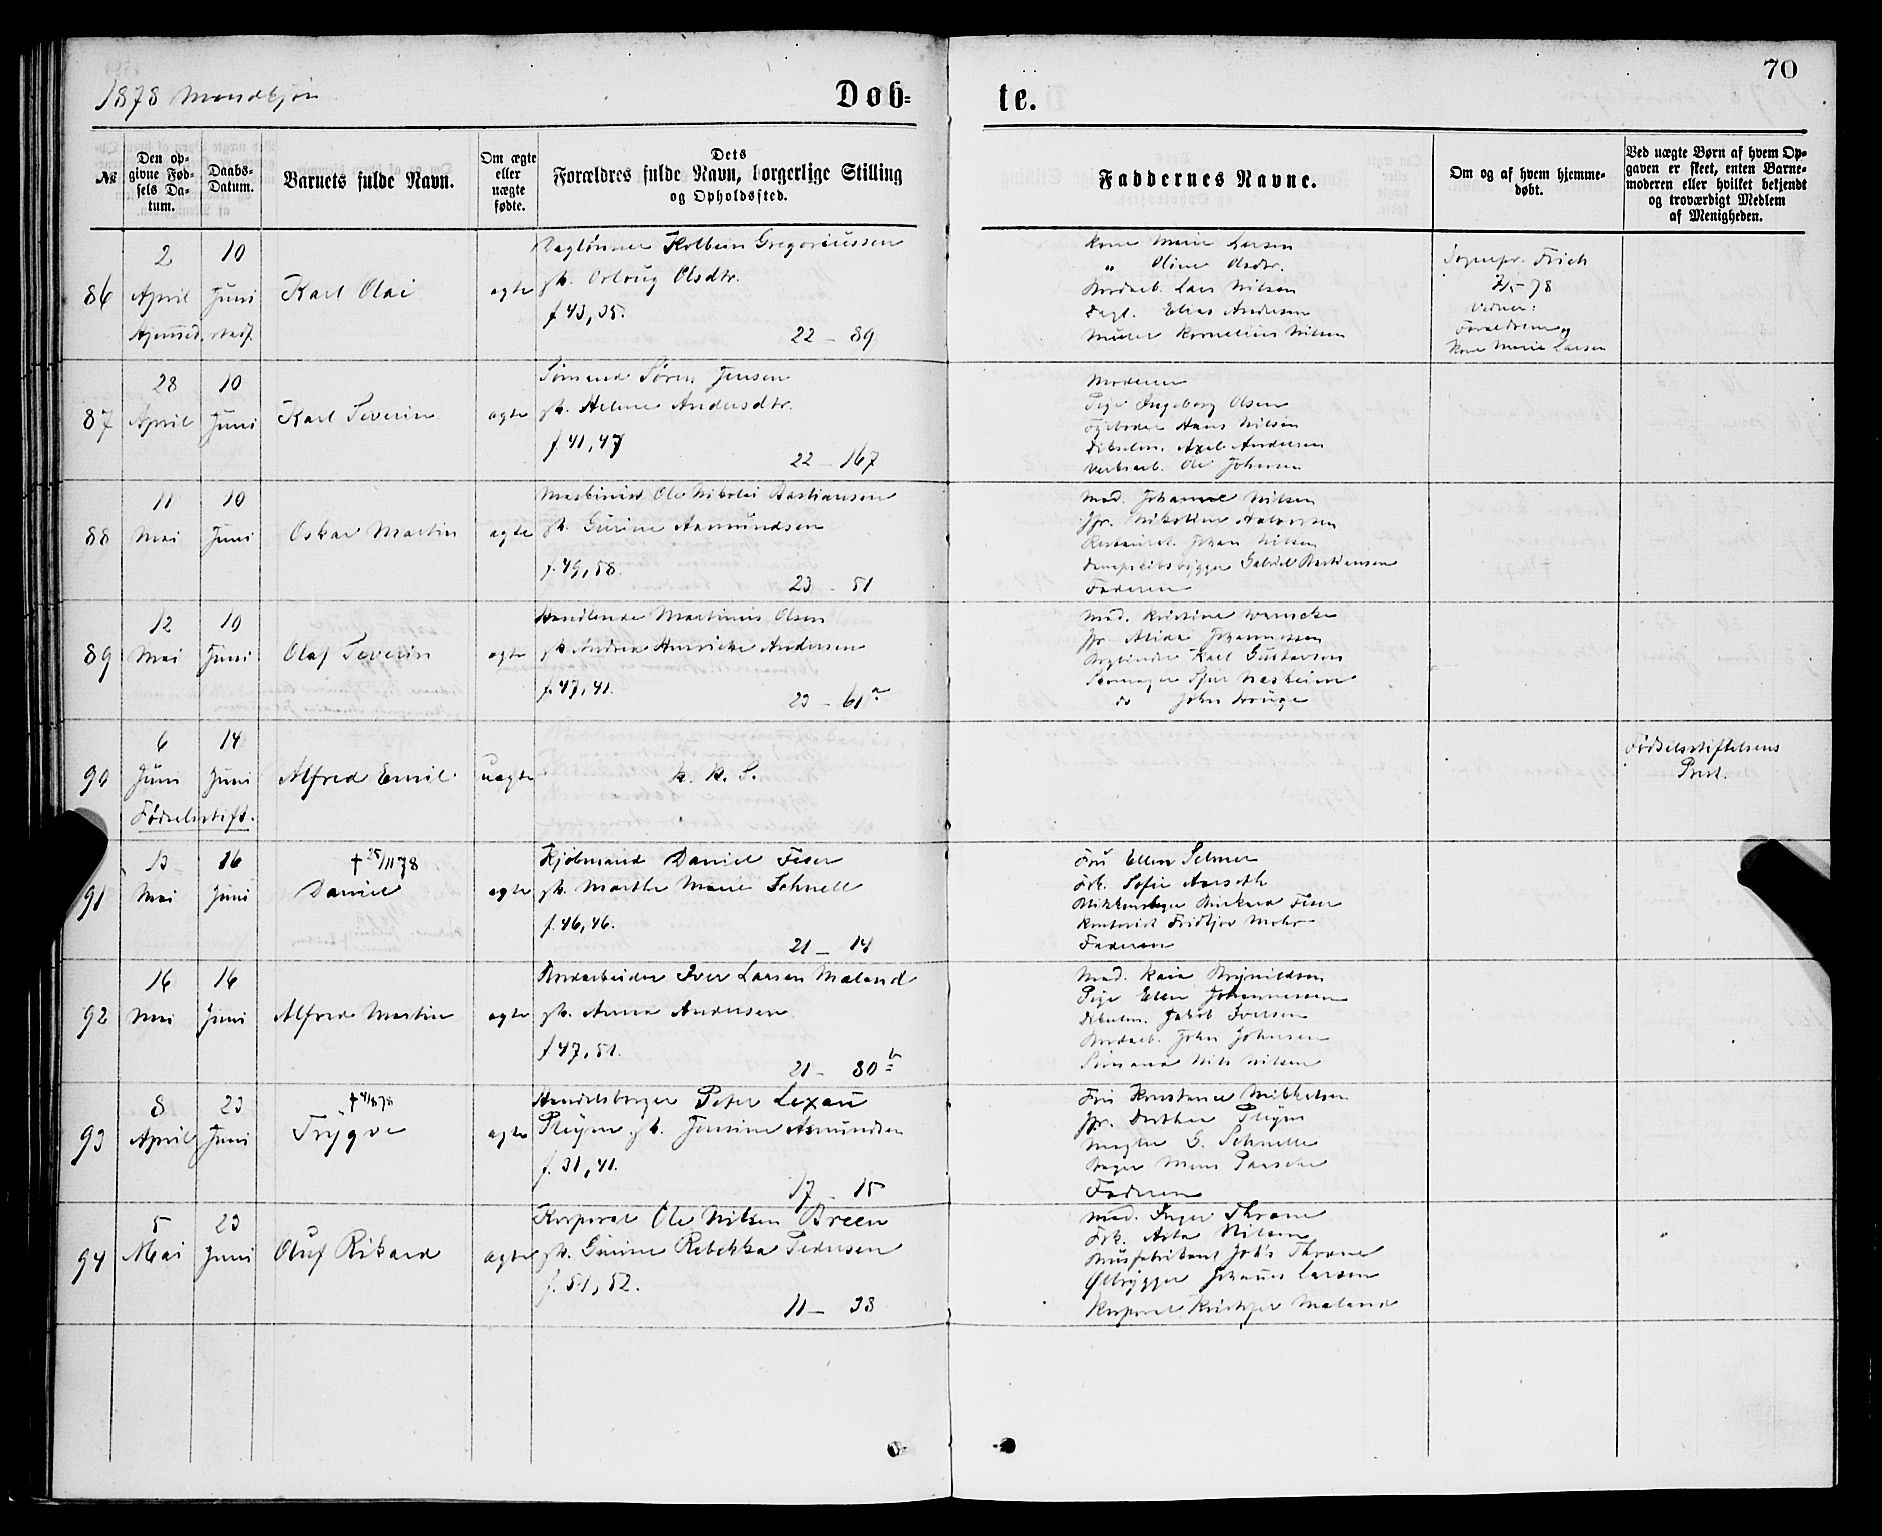 70
1878 Mandkjøn
Døb= te.
№
Den op-
givne Fød-
sels Da-
tum.
Daabs-
Datum.
Barnets fulde Navn.
Om ægte
eller
uægte
fødte.
Dets
Forældres fulde Navn, borgerlige Stilling
og Opholdssted.
Faddernes Navne.
Om og af hvem hjemme-
døbt.
Ved uægte Børn af hvem Op-
gaven er skeet, enten Barne-
moderen eller hvilket bekjendt
og troværdigt Medlem
af Menigheden.
86
2
April
10
Juni
Karl Olai
ægte
Daglønner Kolbein Gregoriussen
gh. Orloug Olsdtr.
f 43, 35.
22 – 89
Kone Marie Larsen
" Oline Olsdtr.
Bordarb. Lars Nilsen
Dagl. Elias Andersen
Murer Kornelius Nilsen
Sognepr. Frich
Vidner:
Forældrene og
Kone Marie Larsen
87
28
April
10
Juni
Karl Severin
ægte
Sømand Søren Jensen
gh. Helene Andersdtr.
f 41, 47
22 – 167
Moderen
Pige Ingeborg Olsen
Hans Nilsen
Axel Andersen
Verksarb. Ole Johnsen
88
11
Mai
10
Juni
Oskar Martin
ægte
Maskinist Ole Nikolai Bastiansen
gh. Gurine Aamundsen
f. 49, 58.
23 – 51
Mad. Johanne Nilsen
Jfr. Nikoline
Johan Nilsen
Dampskibsbygger Gabriel Bastiansen
Faderen
89
12
Mai
10
Juni
Olaf Severin
ægte
Handlende Martinus Olsen
gh. Andrea Henrikke Andersen
f. 47, 41.
23 – 61 a
Mad. Kristine
Jfr. Alida Johannessen
Karl Gustavsen
Nesheim
do John
90
6
Juni
Fødselsstift.
14
Juni
Alfred Emil
uægte
K. K. S.
Fødselsstiftelsens
Prest.
91
13
Mai
16
Juni
† 25/11 78
Daniel
ægte
Kjøbmand Daniel Feser
gh. Marthe Marie Schnell
f. 46, 46.
21 – 14
Fru Ellen Selmer
Frk. Sofie Aarseth
Blikkenslager Rikard Feser
Kontorist Fridtjov Mohr
Faderen
92
16
Mai
16
Juni
Alfred Martin
ægte
Iver Larsen Maland
gh. Anna Andersen
f 47, 51.
21 – 80 b
Mad. Kaia Brynildsen
Pige Ellen Johannessen
Jakob Iversen
Bordarb. John Johnsen
Sømand Nils Nilsen
93
8
April
23
Juni
Trygve
ægte
Handelsborger Peter Lexau
Pleym gh. Jensine Asmundsen
f. 31, 41.
17 – 15
Fru Konstance Mikkelsen
Jfr. Dorthea Pleym
Mægler G. Schnelle
Bager Mons Paasche
Faderen
94
5
Mai
23
Juni
Oluf Rikard
ægte
Korporal Ole Nilsen Breen
gh. Gurine Rebekka Pedersen
f. 51, 52.
11 – 38
Mad. Inger Thrane
Frk. Asta Nilsen
Joh's Thrane
Ølbrygger Johannes Larsen
Korporal Kristofer Maland